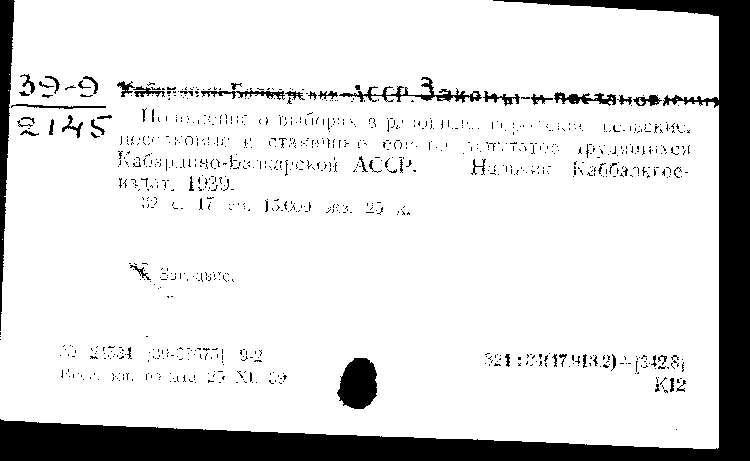 39-9
2145
Кабардино-Балкарская АССР. Законы и постановления
Положение о выборах в районные, городские, сельские,
поселковые и станичные советы депутатов трудящихся
Кабардино-Балкарской АССР. Нальчик Каббалкгос-
издат, 1939.
32 с. 17 см. 15.000 экз. 25 к.
Заглавие.
9-2
25 XI. 39
К12